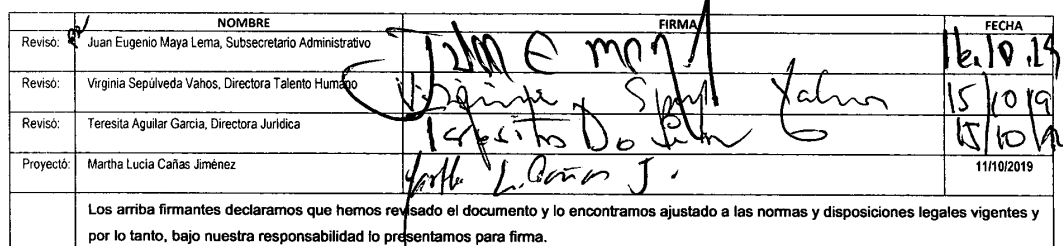 NOMBRE FIRMA FECHA
Revisó: Juan Eugenio Maya Lema, Subsecretario Administrativo Juan E Maya 16.10.19
Revisó: Virginia Sepúlveda Vahos, Directora Talento Humano Virginia Vahos 15/10/19
Revisó: Teresita Aguilar García, Directora Jurídica Teresita 15/10/19
Proyectó: Martha Lucía Cañas Jiménez Martha L. Cañas J. 11/10/2019
Los arriba firmantes declaramos que hemos revisado el documento y lo encontramos ajustado a las normas y disposiciones legales vigentes y
por lo tanto, bajo nuestra responsabilidad lo presentamos para firma.